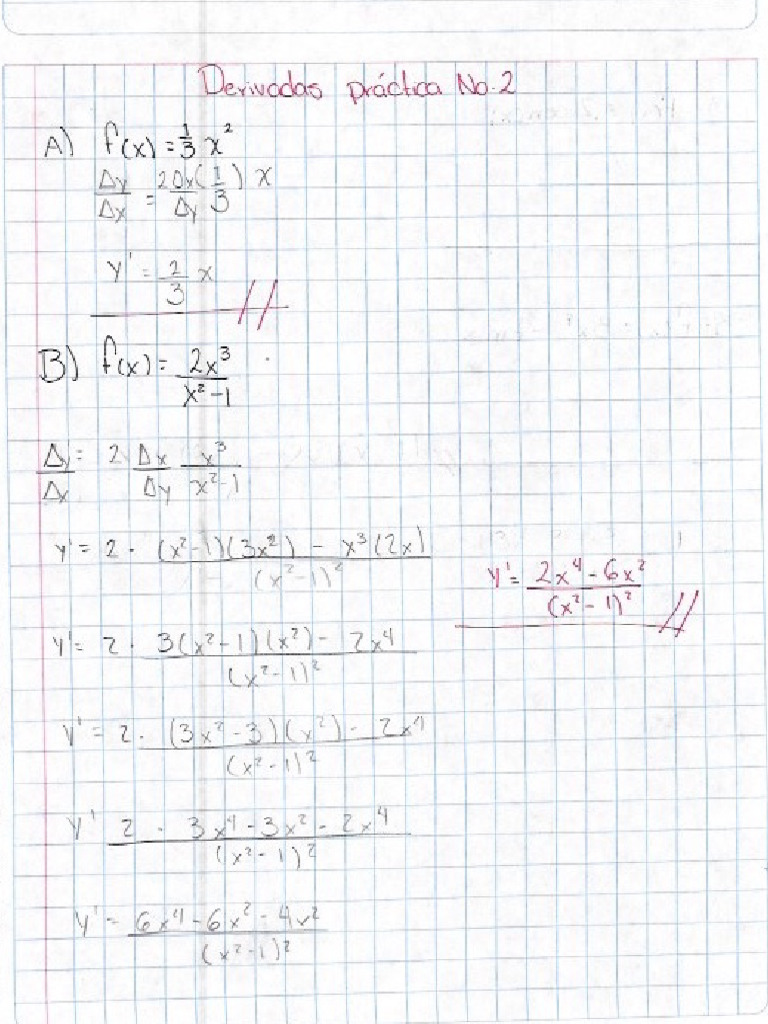 Derivadas práctica No. 2
A) f(x) = 1/3 x²
Δy/Δx = 2Δx/Δy (1/3) x
y' = 2/3 x
B) f(x) = 2x³/(x²-1)
Δy/Δx = 2 Δx/Δy x³/(x²-1)
y' = 2 · ((x²-1)(3x²) - x³(2x))/(x²-1)²
y' = (2x⁴ - 6x²)/(x²-1)²
y' = 2 · (3(x²-1)(x²) - 2x⁴)/(x²-1)²
y' = 2 · ((3x²-3)(x²) - 2x⁴)/(x²-1)²
y' 2 · (3x⁴ - 3x² - 2x⁴)/(x²-1)²
y' = (6x⁴ - 6x² - 4x²)/(x²-1)²